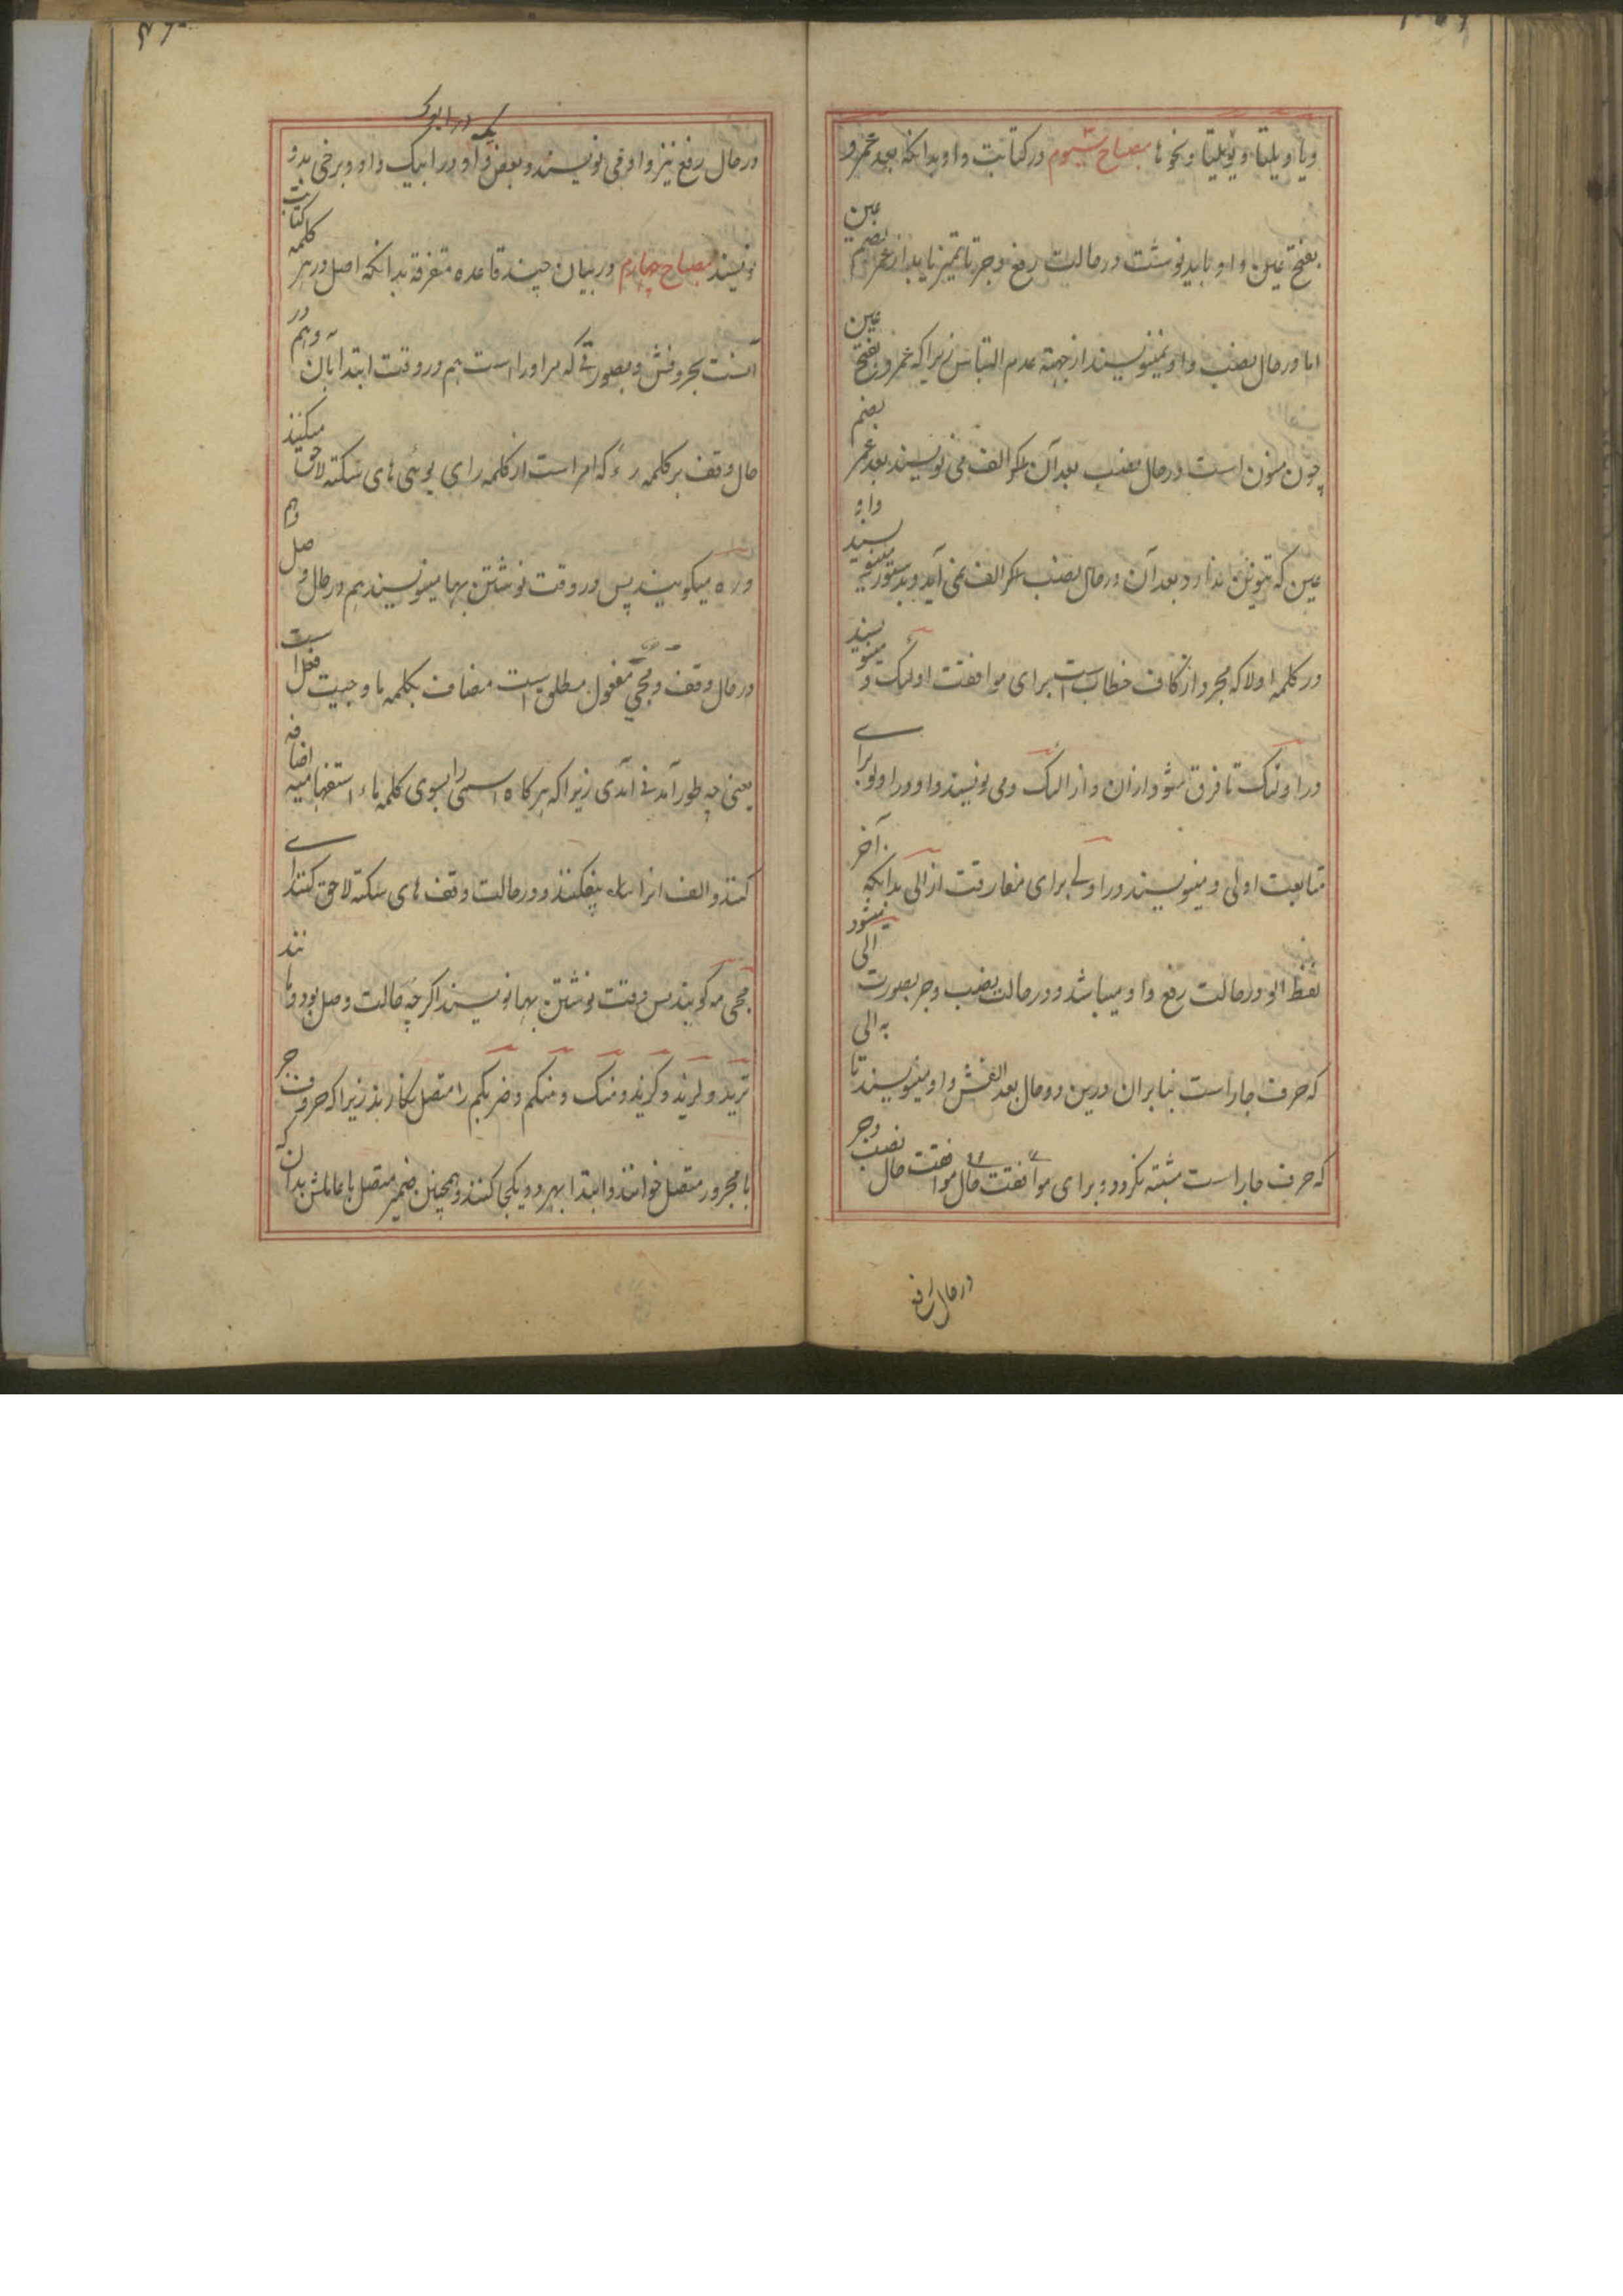 ویا ویلتا و یویلتا و نحو ها مصباح سیوم در کتابت واو بدانکه بعد عمرو
بفتح عین واو باید نوشت در حالت رفع و جر تا تمیز یابد از عمر بضم عین
اما در حال نصب واو نمینویسند از جهة عدم التباس زیرا که عمرو بفتح عین
چون منون است در حال نصب بعد آن الف می نویسند بعد عمر بضم
عین که تنوین ندارد بعد آن در حال نصب الف نمی آید و بدستور مینویسند واو
در کلمه اولا که مجرد از کاف خطاب است برای موافقت اولئک و مینویسند
در اولئک تا فرق شود ازان و از الیک و می نویسند واو در اولو برای
متابعت اولی و مینویسند در اولی برای مفارقت از الی بدانکه آخر
لفظ الو در حالت رفع واو میباشد و در حالت نصب و جر بصورت الی میشود
که حرف جار است بنابران درین دو حال بعد الفش واو مینویسند تا به الی
که حرف جار است مشتبه نگردد و برای موافقت حال نصب و جر
در حال رفع
در حال رفع نیز واو می نویسند و بعض واو در ابیک واو و برخی بدو
نویسند مصباح چهارم در بیان چند قاعده متفرقه بدانکه اصل در هر کلمه کتابت
آنست بحروفش و بصورتی که مر او را است هم در وقت ابتدا بآن و هم در
حال وقف بر کلمه رء که امر است از کلمه رای یرئی های سکته لاحق میکنند
و ره میگویند پس در وقت نوشتن بها مینویسند هم در حال وصل و هم
در حال وقف و مجی مفعول مطلق است مضاف بکلمه ما و جیت فعل است
یعنی چه طور آمدنی آمدی زیرا که هر گاه اسمی را بسوی کلمه ماء استفهامیه اضافه
کنند و الف انرا بیفکنند و در حالت وقف های سکته لاحق کنند
مجی مه گویند پس وقت نوشتن بها نویسند اگرچه حالت وصل بود و تا
بزید و لزید و کزید و منک و منکم و ضربکم را متصل نگارند زیرا که حروف جر
با مجرور متصل خوانند و ابتدا بهر دو یکجی کنند و همچنین ضمیر متصل با عاملش بدانکه